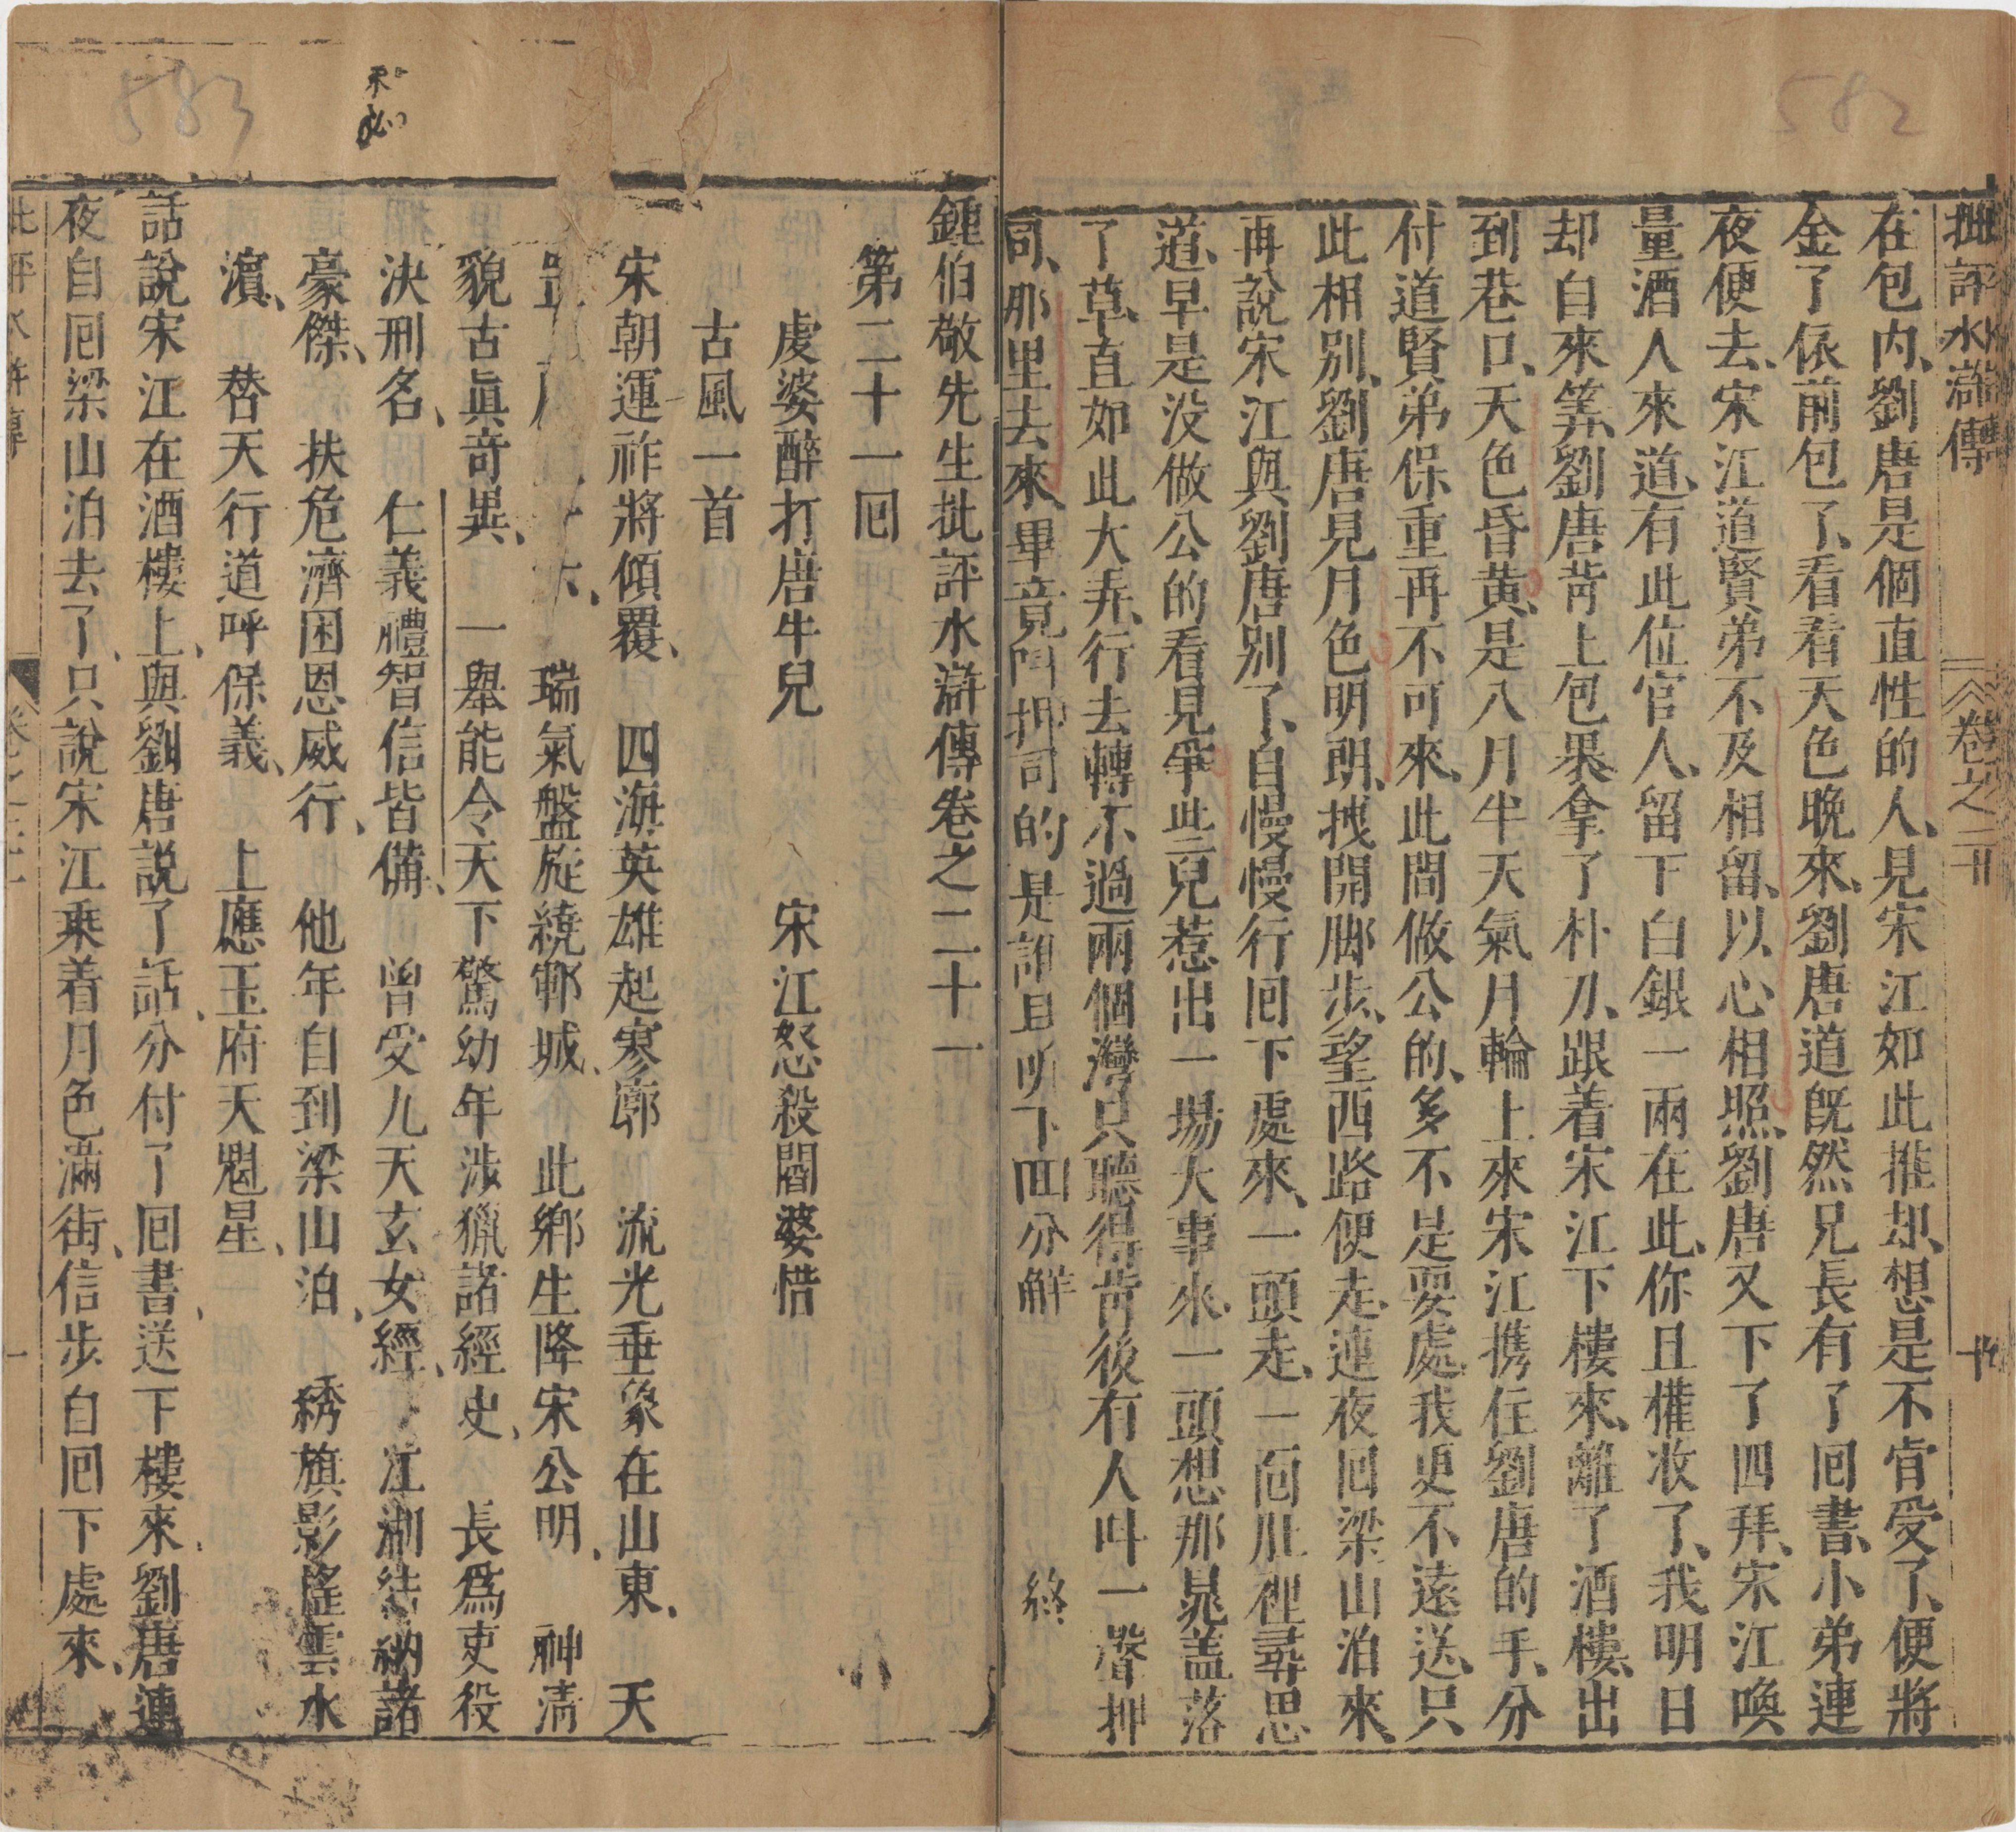 582
批評水滸傳 卷之二十
在包内、劉唐是個直性的人、見宋江如此推却、想是不肯受了、便將
金了依前包了、看看天色晚來、劉唐道既然兄長有了囘書、小弟連
夜便去、宋江道賢弟不及相留、以心相照、劉唐又下了四拜、宋江喚
量酒人來道、有此位官人、留下白銀一兩在此、你且權收了、我明日
却自來筭、劉唐背上包果拿了朴刀、跟着宋江下樓來、離了酒樓、出
到巷口、天色昏黄、是八月半天氣月輪上來宋江携住劉唐的手、分
付道賢弟保重再不可來、此間做公的、多不是耍處、我更不遠送、只
此相別、劉唐見月色明朗、拽開脚步、望西路便走、連夜囘梁山泊來、
再說宋江與劉唐別了、自慢慢行囘下處來、一頭走、一面肚裡尋思
道、早是没做公的看見、爭些兒惹出一場大事來、一頭想那晁盖落
了草、直如此大弄、行去轉不過兩個灣、只聽得背後有人叫一聲押
司、那里去來、畢竟叫押司的是誰且听下回分解
終
583
鍾伯敬先生批評水滸傳卷之二十一
第二十一囘
虔婆醉打唐牛兒 宋江怒殺閻婆惜
古風一首
宋朝運祚將傾覆、 四海英雄起寒廓 流光垂象在山東、 天
瑞氣盤旋繞鄆城、 此鄉生降宋公明、 神清
貌古眞奇異、 一舉能令天下驚幼年涉獵諸經史、 長爲吏役
決刑名、 仁義禮智信皆備、 曾受九天玄女經、 江湖結納諸
豪傑、 扶危濟困恩威行、 他年自到梁山泊、 綉旗影摇雲水
濵、 替天行道呼保義、 上應玉府天魁星、
話說宋江在酒樓上、與劉唐説了話、分付了囘書、送下樓來、劉唐連
夜自囘梁山泊去了、只說宋江乘着月色滿街、信步自囘下處來、
一